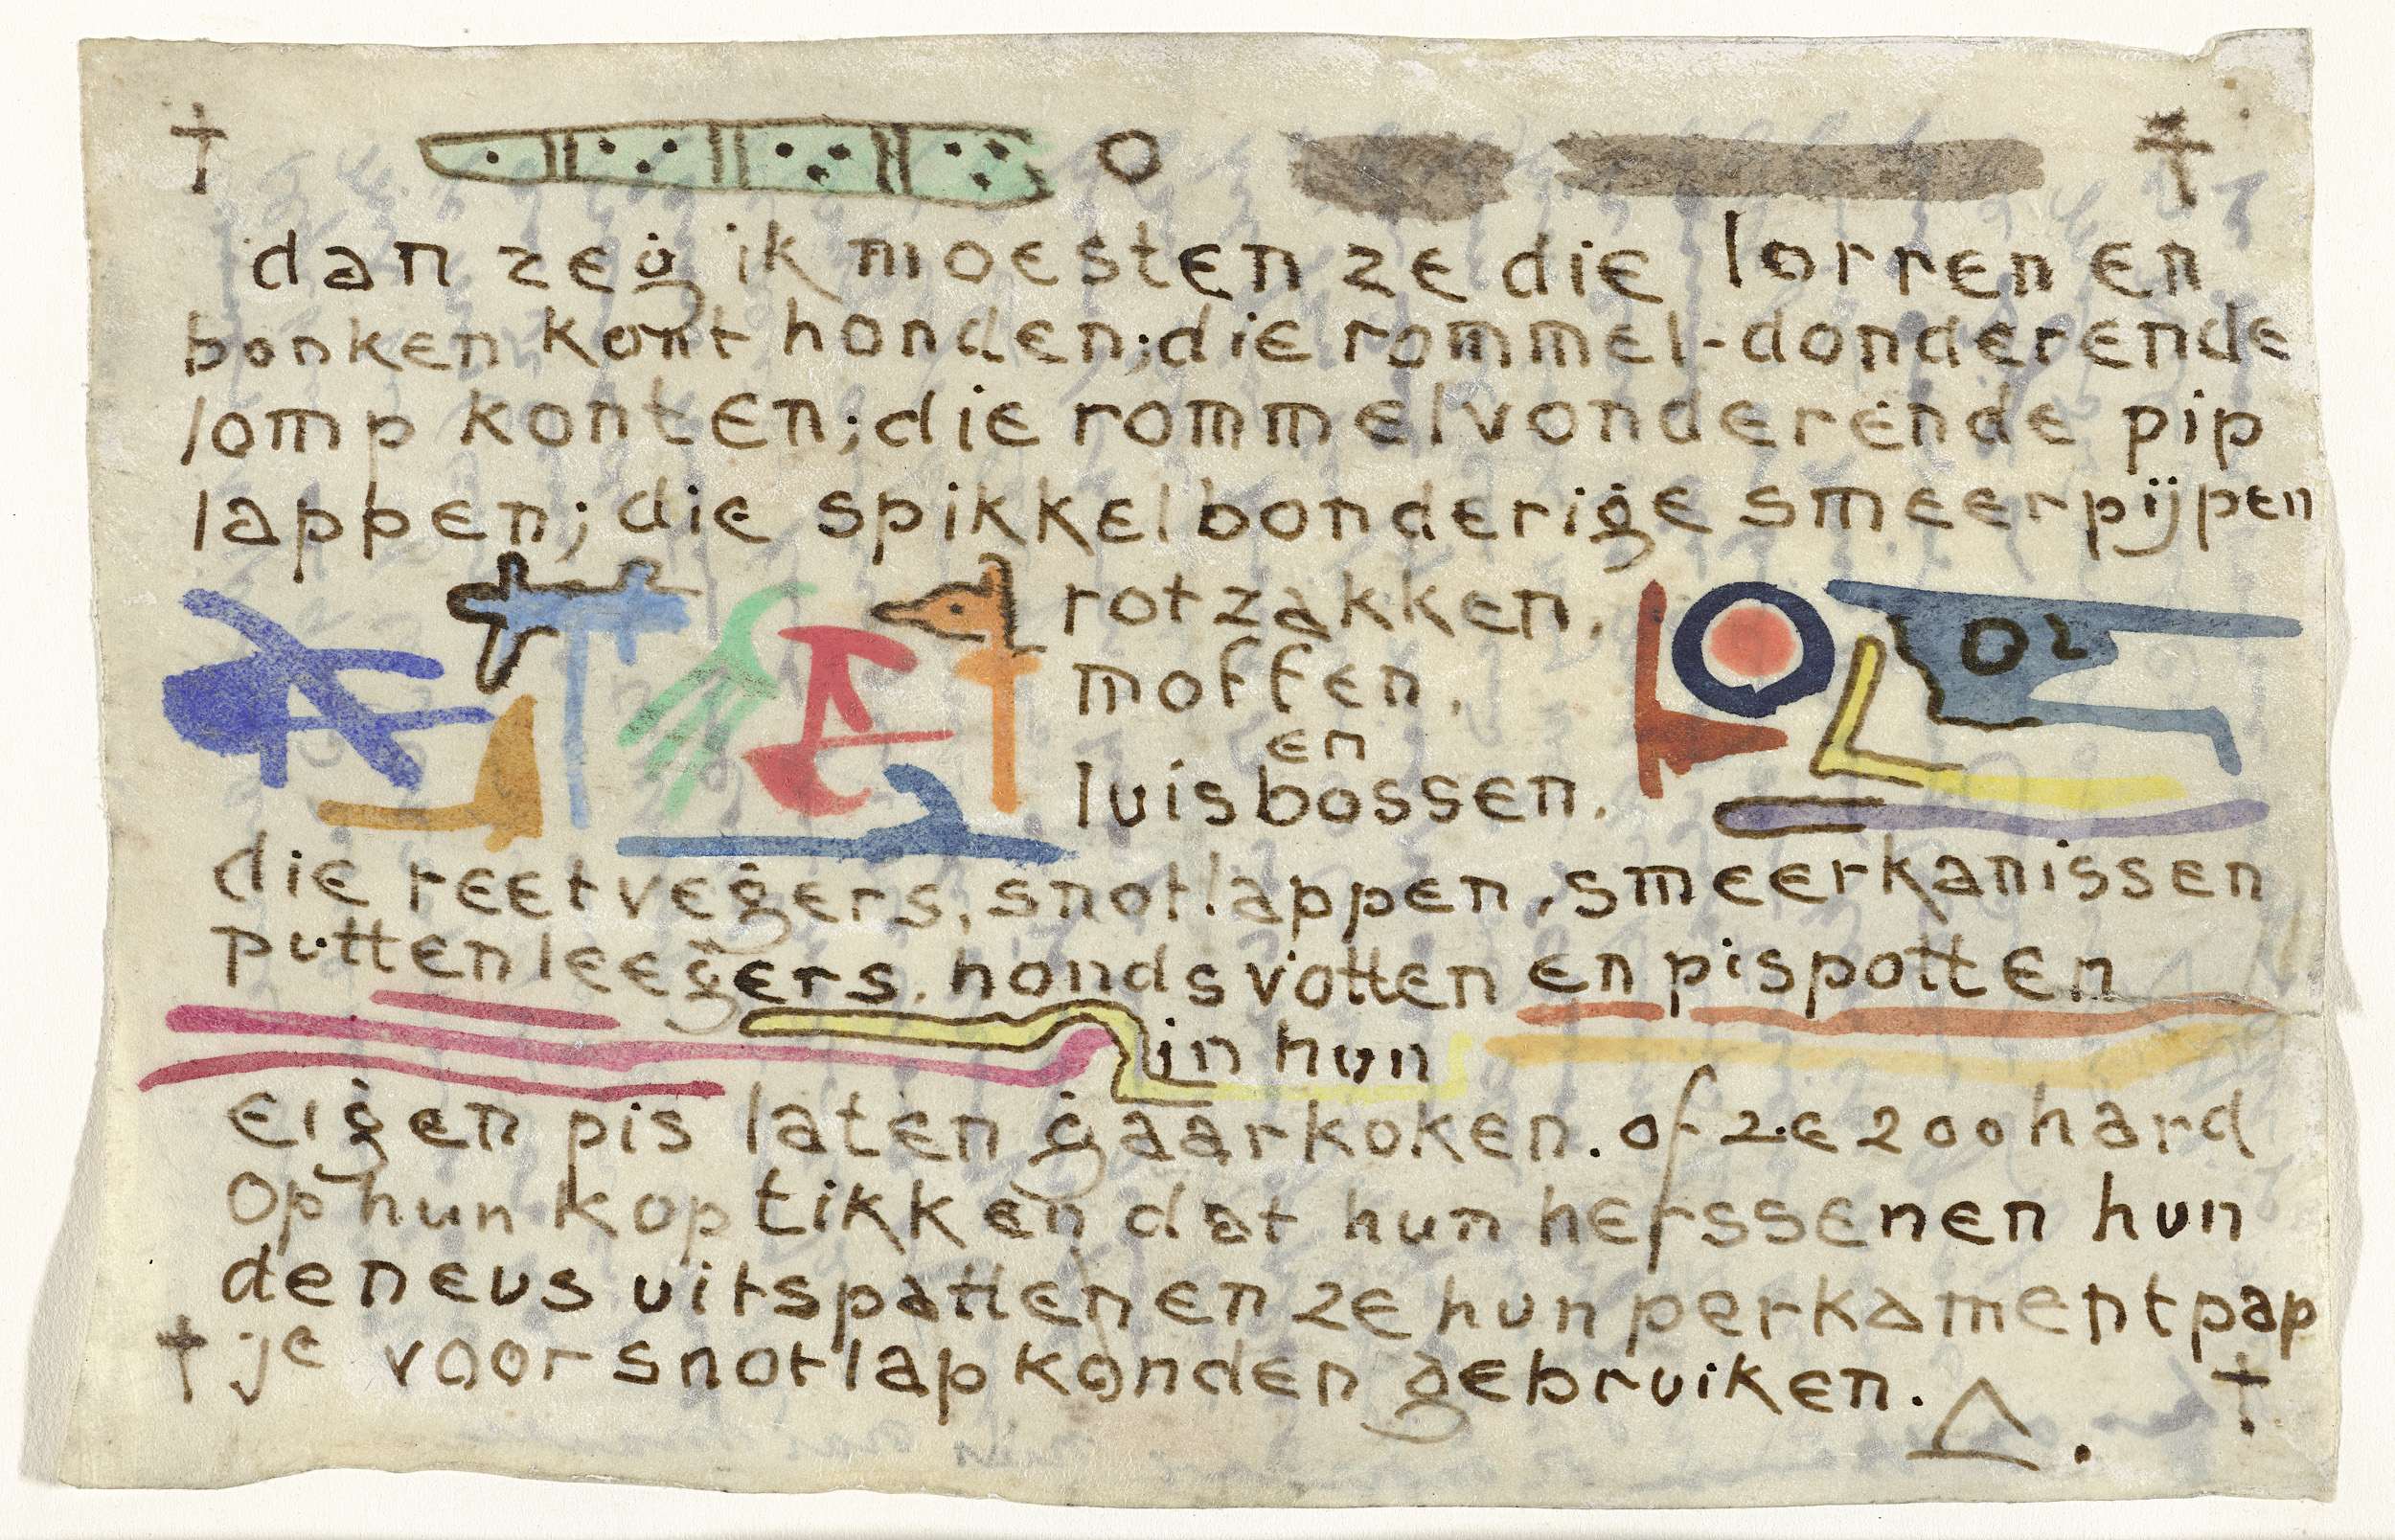 dan zeg ik moesten ze die lorren en
bonken kont honden; die rommel-donderende
lomp konten; die rommelvonderende pip
lappen; die spikkelbonderige smeerpijpen
rotzakken,
moffen,
en
luisbossen.
die reetvegers, snotlappen, smeerkanissen
puttenleegers, hondsvotten en pispotten
in hun
eigen pis laten gaarkoken. of ze zoo hard
op hun kop tikken dat hun herssenen hun
de neus uitspatten en ze hun perkamentpap
je voor snotlap konden gebruiken.